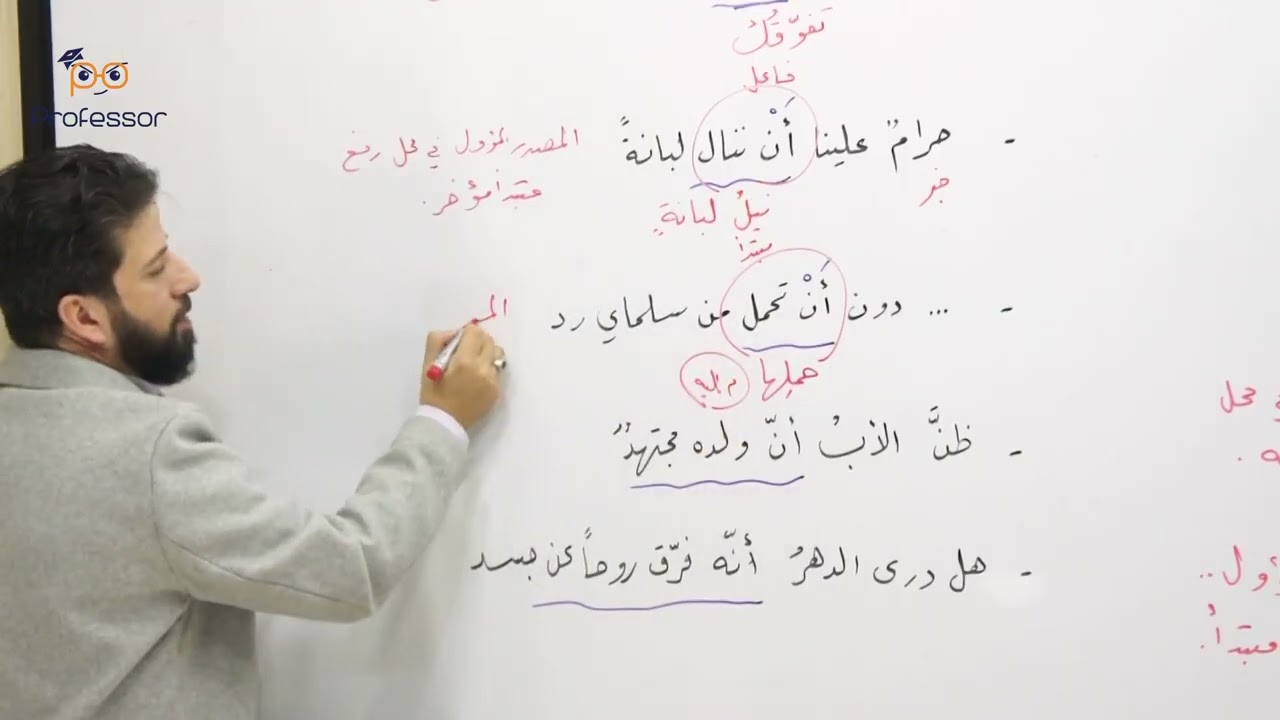 Professor
تفوّقُكَ
فاعل
- حرامٌ علينا أَنْ ننال لبانةً
المصدر المؤول في محل رفع
مبتدأ مؤخر.
خبر
نيلُ لبانةٍ
مبتدأ
- ... دون أَنْ تحمل من سلماي رد
المـ
حملِها
م إليه
- ظنَّ الأبُ أنّ ولده مجتهدٌ
- هل درى الدهرُ أنّه فرّق روحاً عن جسد
محل
ؤول..
مبتدأ.